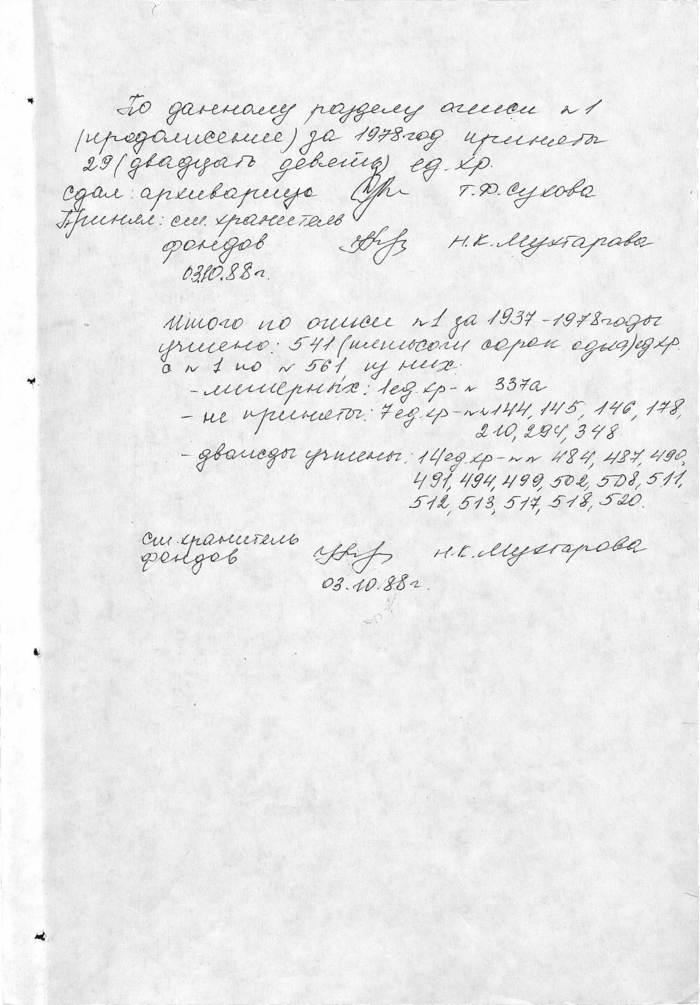 По данному разделу описи №1
(продолжение) за 1978 год приняты
29 (двадцать девять) ед. хр.
Сдал: архивариус Т.Ф. Сухова
Принял: ст. хранитель
фондов Н.К. Мухтарова
03.10.88 г.
Итого по описи №1 за 1937-1978 годы
учтено: 541 (пятьсот сорок одна) ед. хр.
с №1 по №561, из них:
- литерных: 1 ед. хр - № 337а
- не приняты: 7 ед. хр - №№ 144, 145, 146, 178,
210, 294, 348.
- дважды учтены: 14 ед. хр - №№ 484, 487, 490,
491, 494, 499, 502, 508, 511,
512, 513, 517, 518, 520.
ст. хранитель
фондов Н.К. Мухтарова
03.10.88 г.